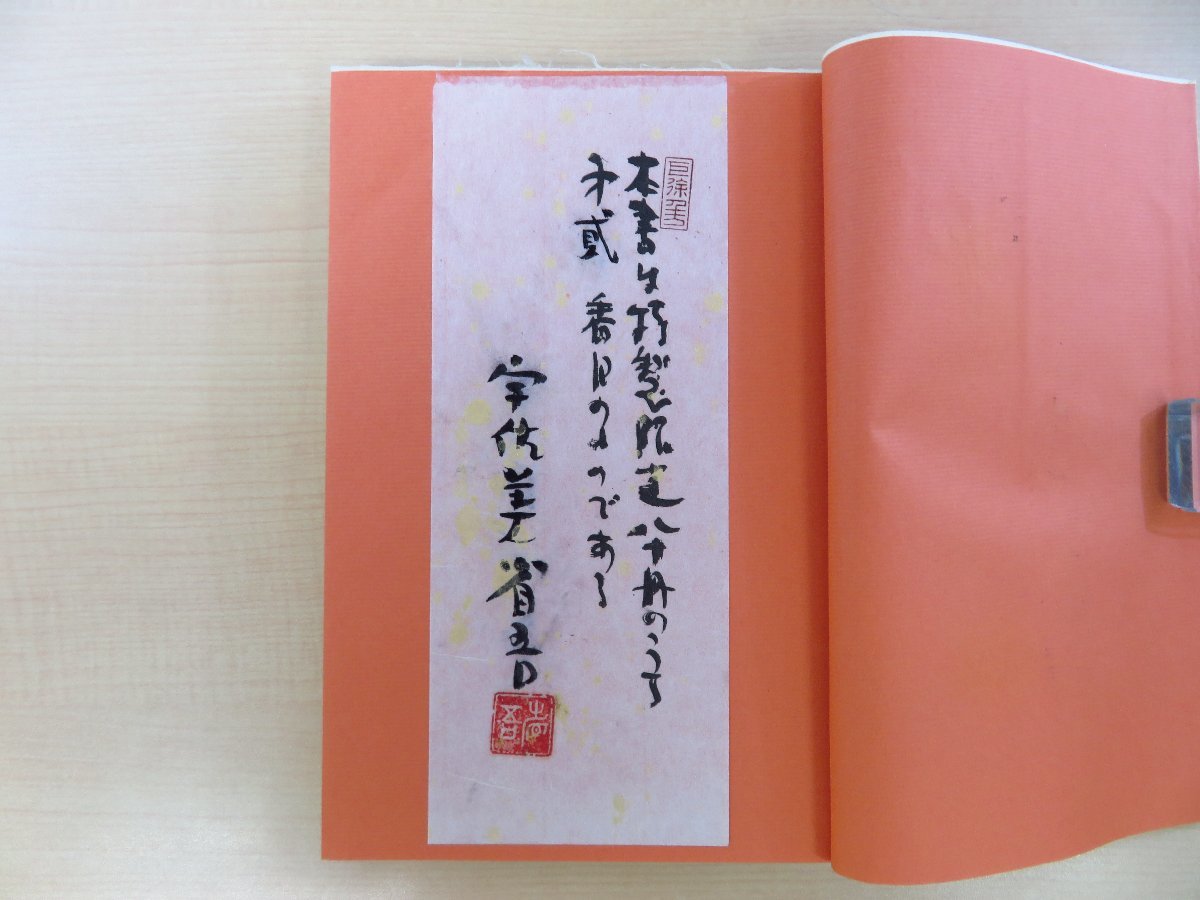 本書は特製限定八十冊のうち
才貳 番目のものである
宇佐美省吾